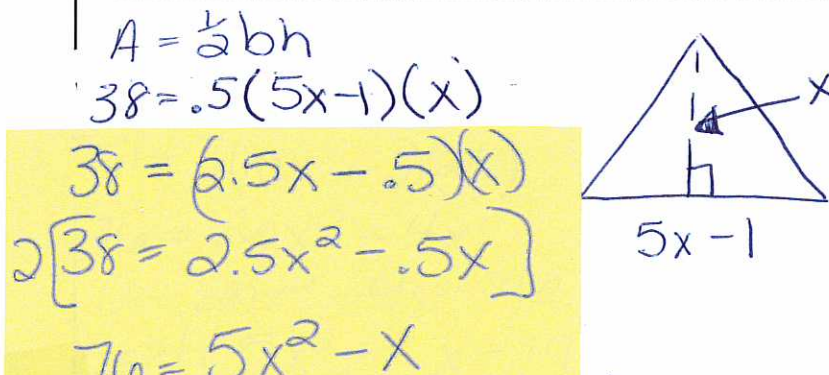 A = ½bh
38 = .5(5x-1)(x)
38 = (2.5x - .5)(x)
2[38 = 2.5x² - .5x]
76 = 5x² - x
x
5x - 1